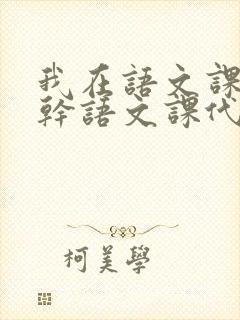 我在語文課
幹語文課代
柯美學